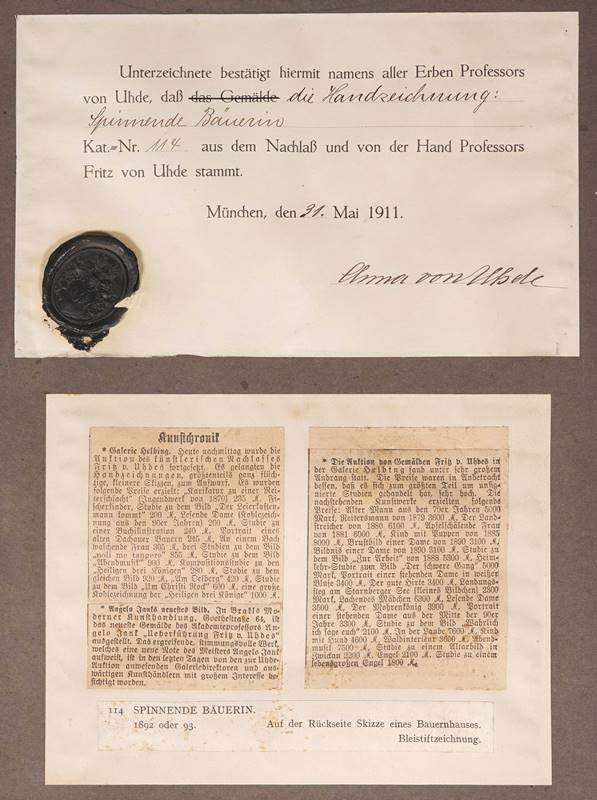 Unterzeichnete bestätigt hiermit namens aller Erben Professors
von Uhde, daß das Gemälde die Handzeichnung:
Spinnende Bäuerin
Kat.=Nr. 114 aus dem Nachlaß und von der Hand Professors
Fritz von Uhde stammt.
München, den 31. Mai 1911.
Anna von Uhde
Kunstchronik
* Galerie Helbing. Heute nachmittag wurde die
Auktion des künstlerischen Nachlasses
Fritz v. Uhdes fortgesetzt. Es gelangten die
Handzeichnungen, größtenteils ganz flüch-
tige, kleinere Skizzen, zum Aufwurf. Es wurden
folgende Preise erzielt: „Karikatur zu einer Rei-
terschlacht“ (Jugendwerk von 1870) 235 M, Fi-
scherkinder, Studie zum Bild „Der Leierkasten-
mann kommt“ 200 M, Lesende Dame (Kohlezeich-
nung aus den 90er Jahren) 260 M, Studie zu einer
Buchillustration 240 M, Portrait eines
alten Dachauer Bauern 245 M, An einem Bach
wäschende Frau 305 M, drei Studien zu dem Bild
„noli me tangere“ 855 M, Studie zu dem Bild
„Abendmusik“ 900 M, Kompositionsstudie zu den
„Heiligen drei Königen“ 280 M, Studie zu dem
gleichen Bild 920 M, „Am Oelberg“ 420 M, Studie
zu dem Bild „Um Christi Rock“ 600 M, eine große
Kohlezeichnung der „Heiligen drei Könige“ 1000 M.
* Angelo Janks neuestes Bild. In Brakls Mo-
derner Kunsthandlung, Goethestraße 64, ist
das neueste Gemälde des Akademieprofessors An-
gelo Jank „Ueberführung Fritz v. Uhdes“
ausgestellt. Das ergreifende, stimmungsvolle Werk,
welches eine neue Note des Meisters Angelo Jank
aufweist, ist in den letzten Tagen von den zur Uhde-
Auktion anwesenden Galeriedirektoren und aus-
wärtigen Kunsthändlern mit großem Interesse be-
sichtigt worden.
* Die Auktion von Gemälden Fritz v. Uhdes in
der Galerie Helbing fand unter sehr großem
Andrang statt. Die Preise waren in Anbetracht
dessen, daß es sich zum größten Teil um unsig-
nierte Studien gehandelt hat, sehr hoch. Die
nachstehenden Kunstwerke erzielten folgende
Preise: Alter Mann aus den 70er Jahren 5000
Mark, Reitersmann von 1879 3600 M, Der Land-
streicher von 1880 6100 M, Apfelschälende Frau
von 1881 6000 M, Kind mit Puppen von 1885
8000 M, Brustbild einer Dame von 1890 3100 M,
Bildnis einer Dame von 1890 3100 M, Studie zu
dem Bild „Zur Arbeit“ von 1888 5300 M, Heim-
kehr-Studie zum Bild „Der schwere Gang“ 5000
Mark, Portrait einer stehenden Dame in weißer
Bluse 3400 M, Der gute Hirte 3400 M, Landungs-
steg am Starnberger See (kleines Bildchen) 2300
Mark, Lachendes Mädchen 6300 M, Lesende Dame
3500 M, Der Mohrenkönig 3900 M, Portrait
einer stehenden Dame aus der Mitte der 90er
Jahre 3300 M, Studie zu dem Bild „Wahrlich
ich sage euch“ 2100 M, In der Laube 7600 M, Kind
mit Hund 4600 M, Waldinterieur 3600 M, Abend-
musik 7500 M, Studie zu einem Altarbild in
Zwickau 2200 M, Engel 2100 M, Studie zu einem
lebensgroßen Engel 1800 M.
114 SPINNENDE BÄUERIN.
1892 oder 93. Auf der Rückseite Skizze eines Bauernhauses.
Bleistiftzeichnung.